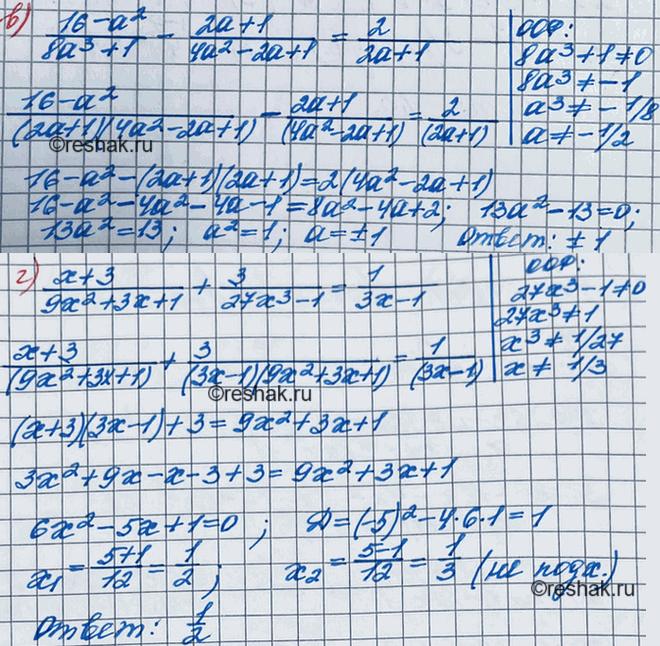 в) (16-a²)/(8a³+1) - (2a+1)/(4a²-2a+1) = 2/(2a+1)
ООФ:
8a³+1≠0
8a³≠-1
a³≠-1/8
a≠-1/2
(16-a²)/((2a+1)(4a²-2a+1)) - (2a+1)/((4a²-2a+1)) = 2/((2a+1))
©reshak.ru
16-a²-(2a+1)(2a+1)=2(4a²-2a+1)
16-a²-4a²-4a-1=8a²-4a+2; 13a²-13=0;
13a²=13; a²=1; a=±1 Ответ: ±1
г) (x+3)/(9x²+3x+1) + 3/(27x³-1) = 1/(3x-1)
ООФ:
27x³-1≠0
27x³≠1
x³≠1/27
x≠1/3
(x+3)/((9x²+3x+1)) + 3/((3x-1)(9x²+3x+1)) = 1/((3x-1))
©reshak.ru
(x+3)(3x-1)+3=9x²+3x+1
3x²+9x-x-3+3=9x²+3x+1
6x²-5x+1=0; Д=(-5)²-4·6·1=1
x₁=(5+1)/12=1/2; x₂=(5-1)/12=1/3 (не подх.)
©reshak.ru
Ответ: 1/2